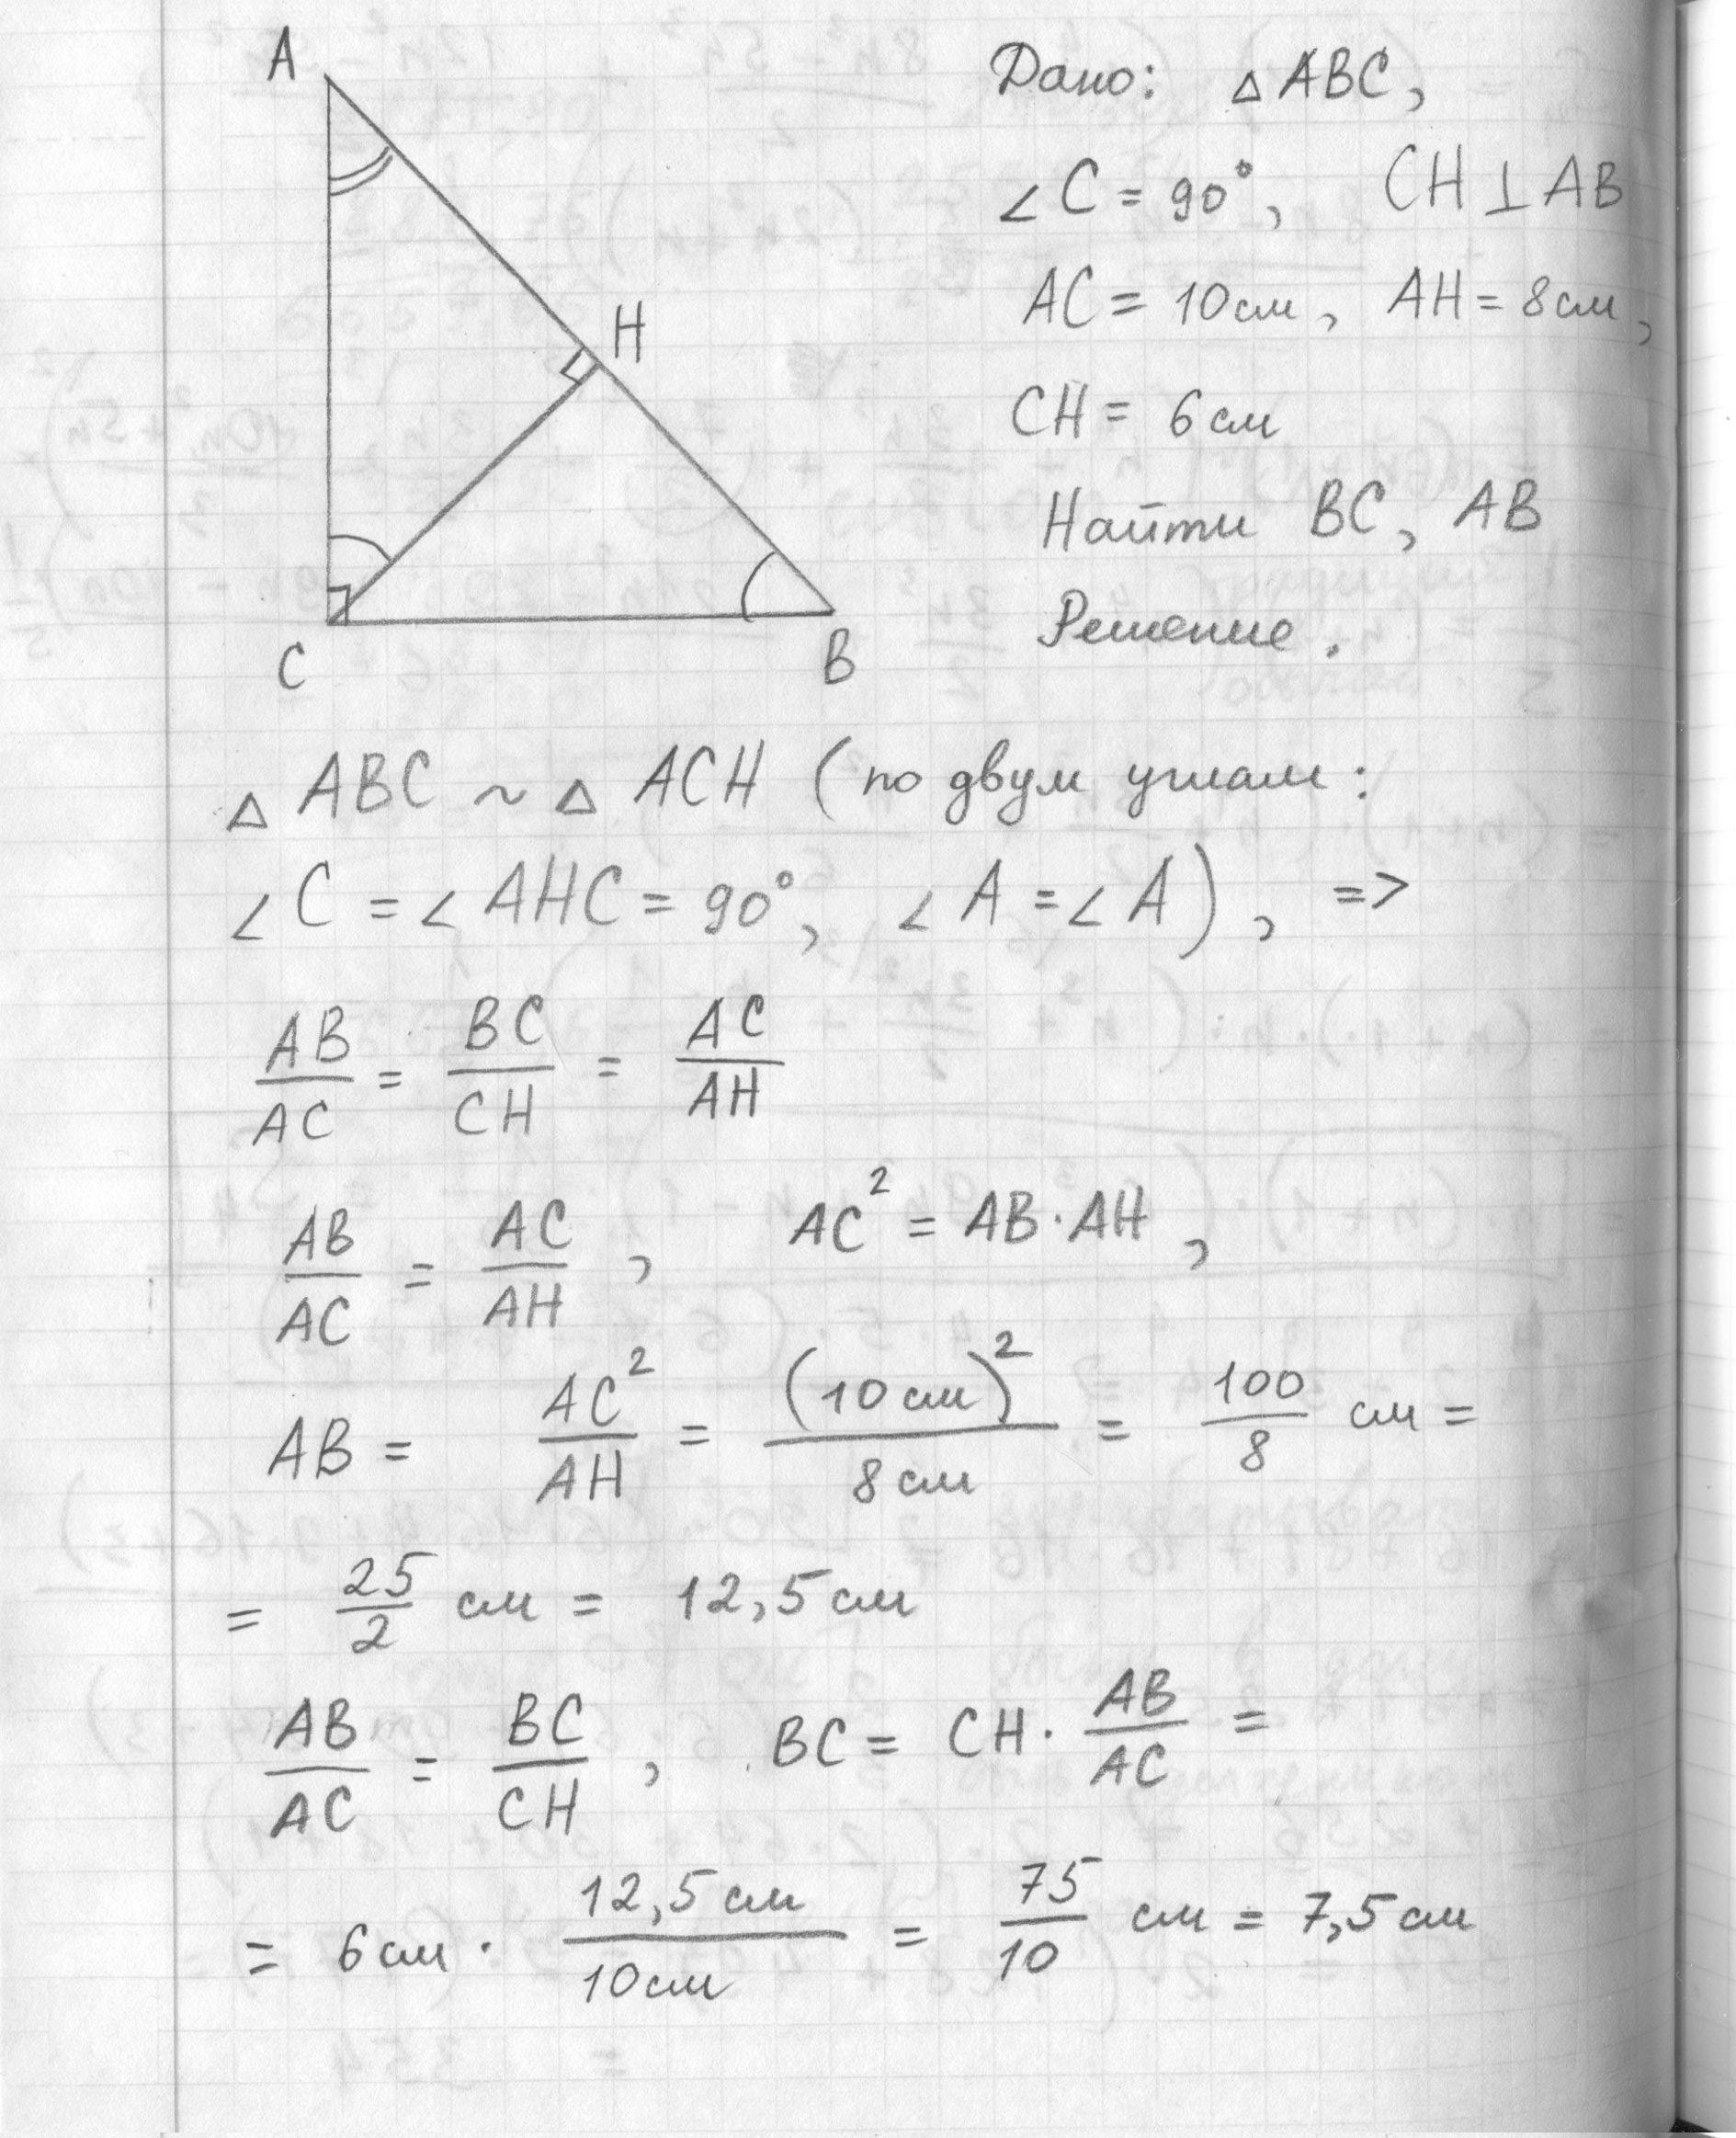 A
H
C
B
Дано: △ ABC,
∠ C = 90°, CH ⊥ AB
AC = 10 см, AH = 8 см,
CH = 6 см
Найти BC, AB
Решение.
△ ABC ~ △ ACH (по двум углам:
∠ C = ∠ AHC = 90°, ∠ A = ∠ A), =>
AB/AC = BC/CH = AC/AH
AB/AC = AC/AH, AC² = AB · AH,
AB = AC²/AH = (10 см)²/8 см = 100/8 см =
= 25/2 см = 12,5 см
AB/AC = BC/CH, BC = CH · AB/AC =
= 6 см · 12,5 см/10 см = 75/10 см = 7,5 см